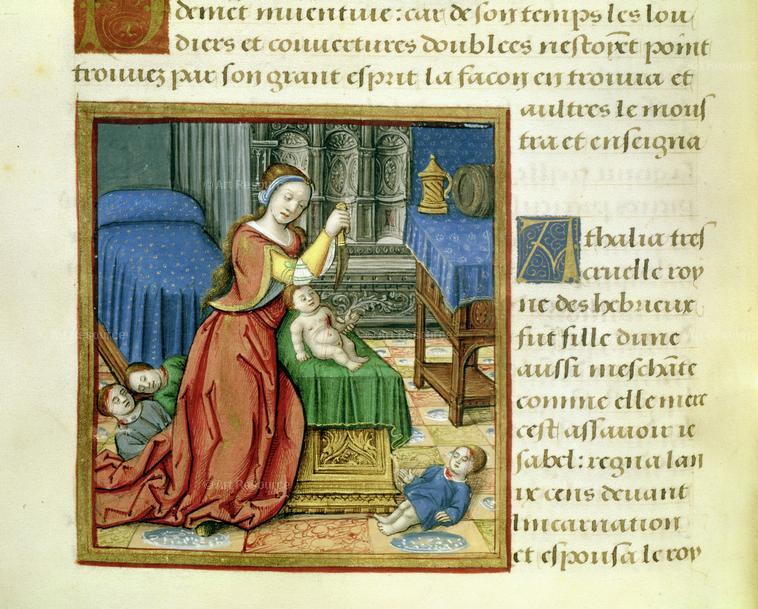 demet inuentiue: car de son temps les lou
diers et couuertures doublees nestoyent point
trouuez par son grant esprit la facon en trouua et
aultres le mons
tra et enseigna
Athalia tres
cruelle roy
ne des hebrieux
fut fille dune
aussi meschāte
comme elle mere
cest assauoir ie
sabel: regna lan
ix cens deuant
lincarnation
et espousa le roy